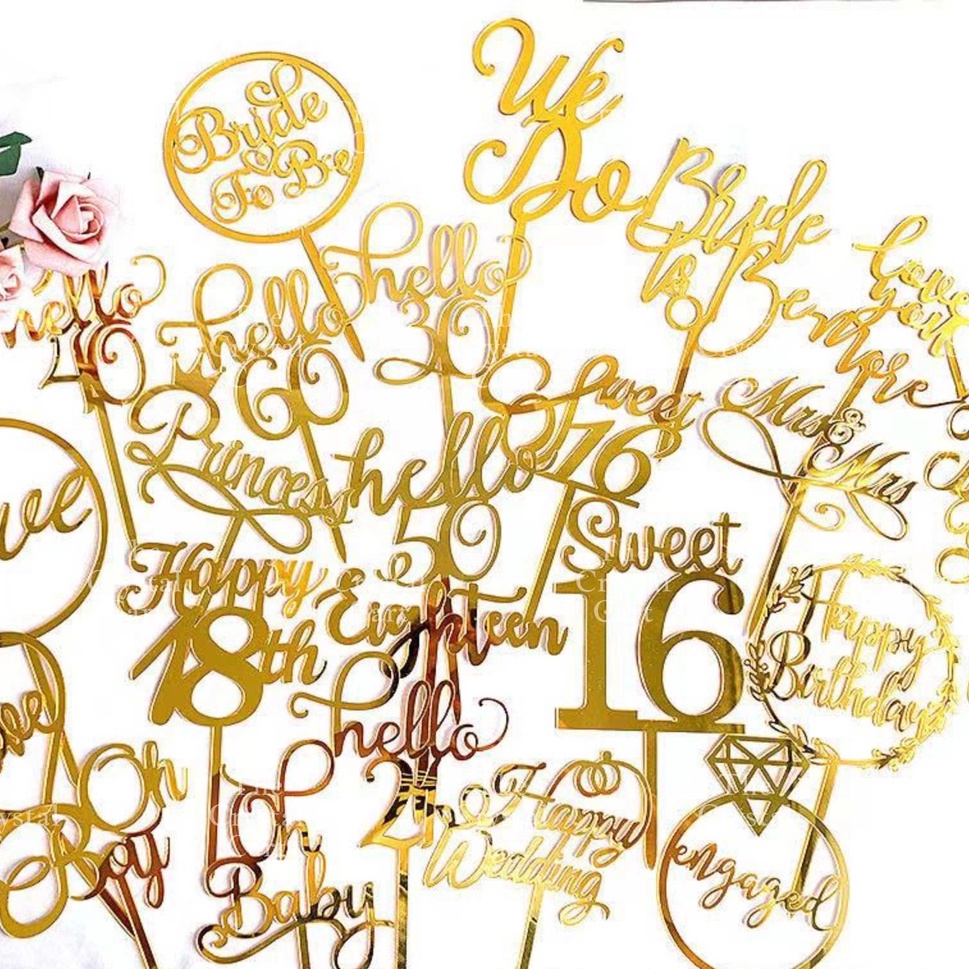 Bride
To Be
We
Do
Bride
to
Be
Love
you
more
hello
40
hello
60
hello
30
Sweet
16
Mrs &
Mrs
Princess
hello
50
Sweet
16
Happy
18th
Eighteen
Happy
Birthday
hello
21
Oh
Boy
Oh
Baby
Happy
Wedding
engaged